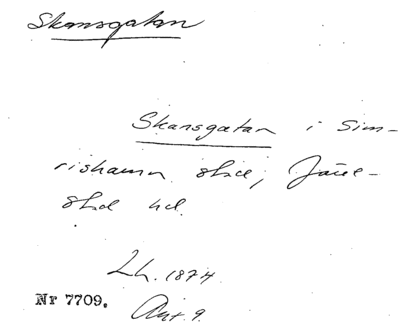 Skansgatan
Skansgatan i Sim-
rishamn stad, Järre-
stad hd.
Lh. 1874
Nr 7709.
Ant. 9.